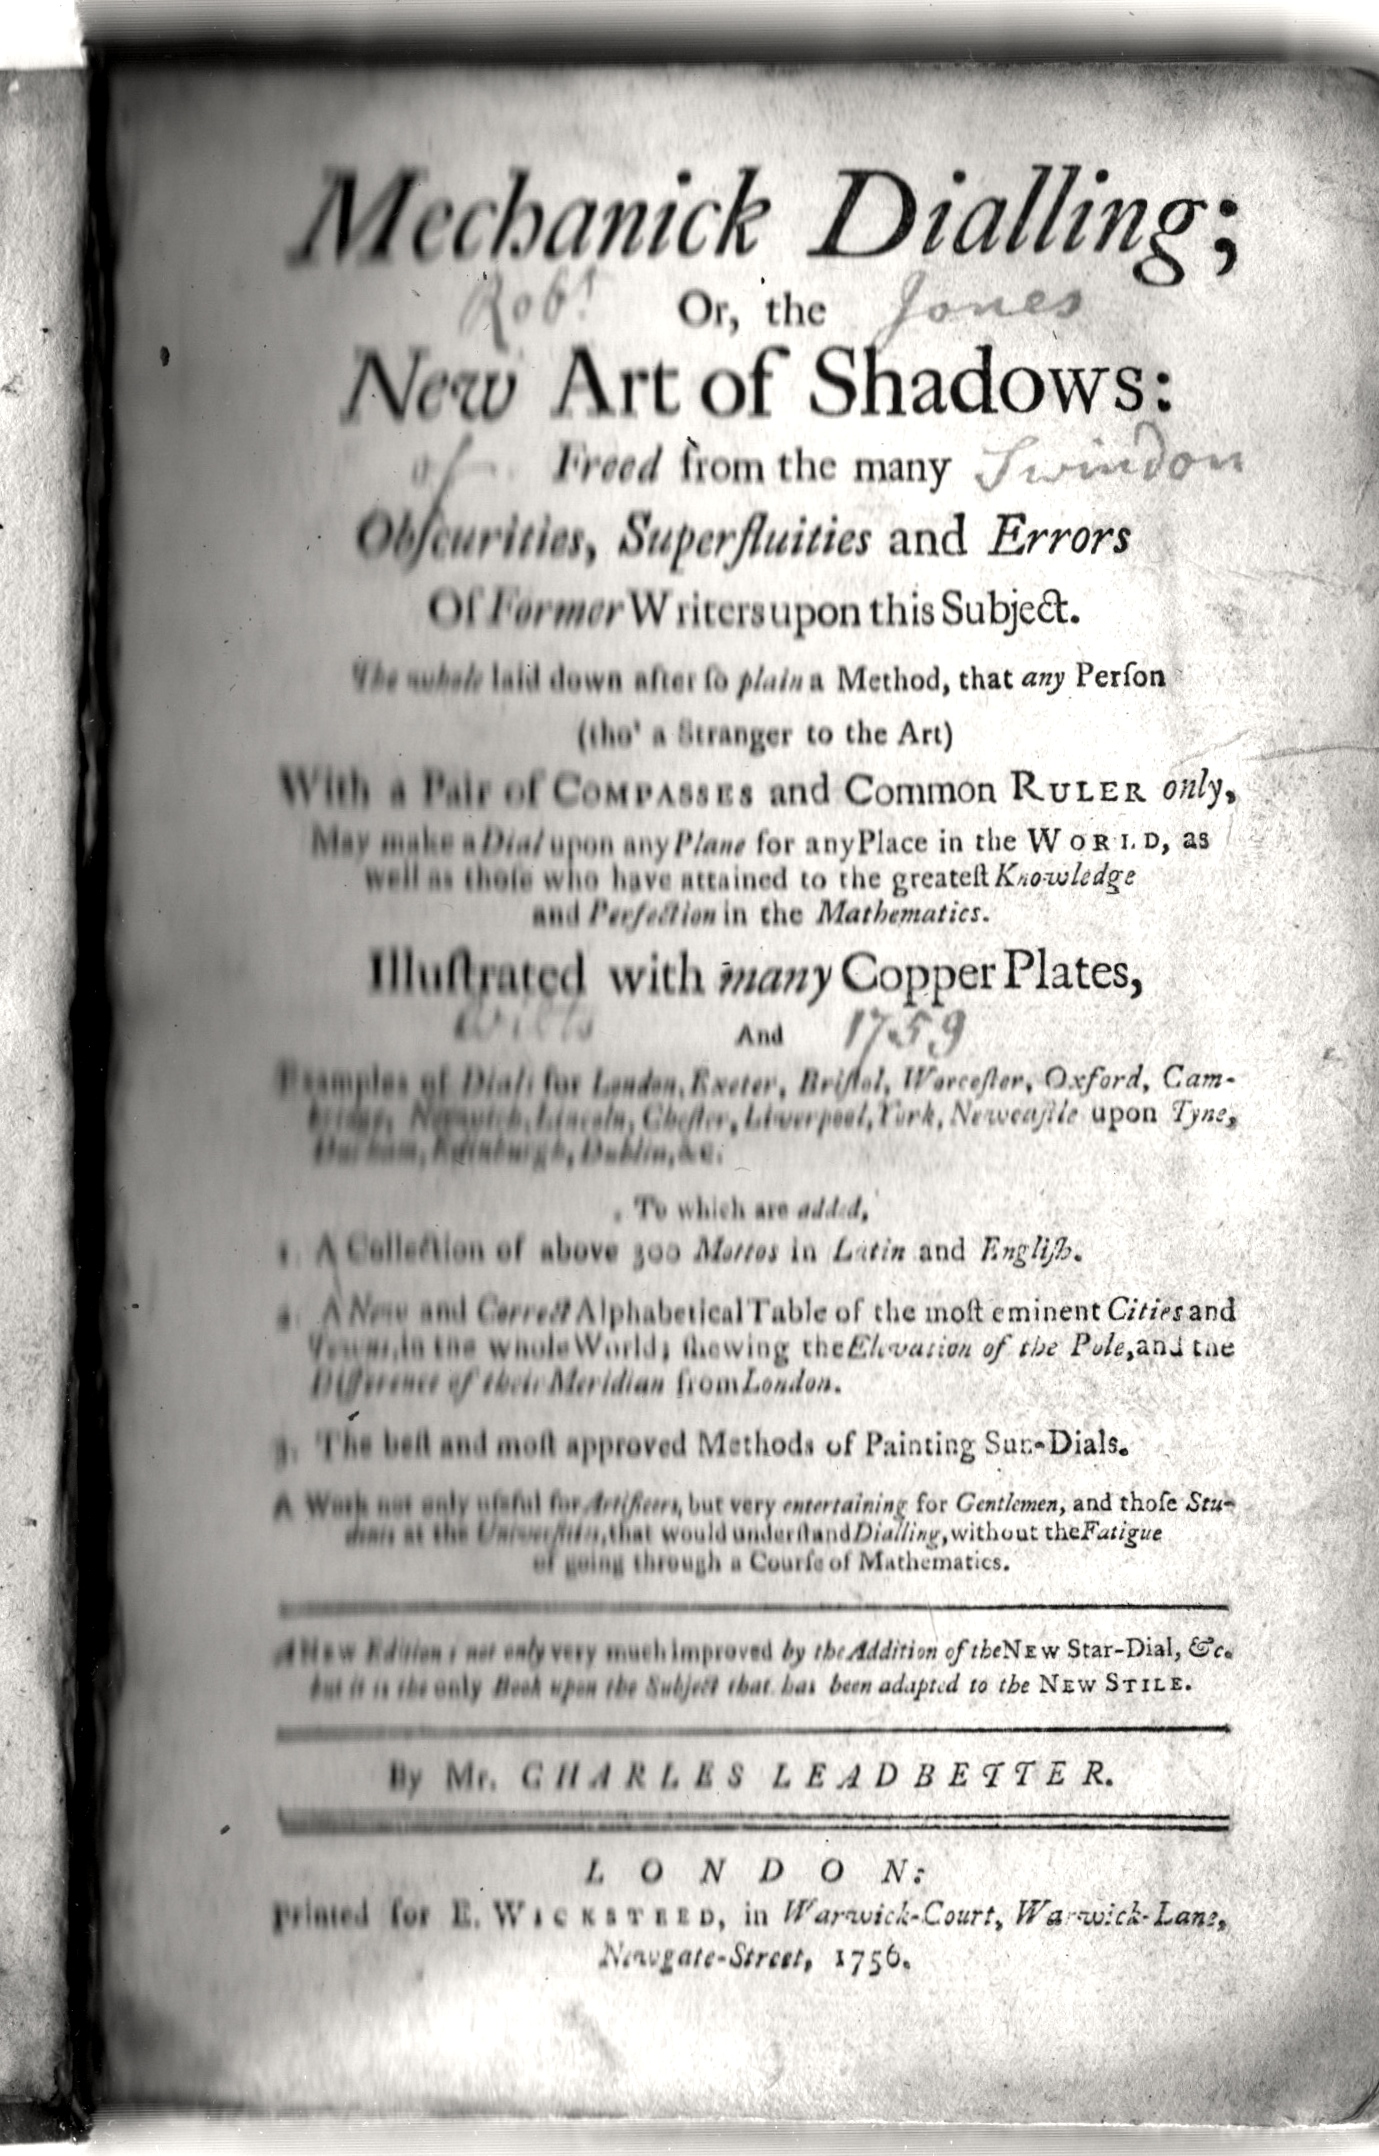 Mechanick Dialling;
Robt. Or, the Jones
New Art of Shadows:
of Freed from the many Swindon
Obſcurities, Superfluities and Errors
Of Former Writers upon this Subject.
The whole laid down after ſo plain a Method, that any Perſon
(tho' a Stranger to the Art)
With a Pair of COMPASSES and Common RULER only,
May make a Dial upon any Plane for any Place in the WORLD, as
well as thoſe who have attained to the greateſt Knowledge
and Perfection in the Mathematics.
Illuſtrated with many Copper Plates,
Wilts And 1759
Examples of Dials for London, Exeter, Briſtol, Worceſter, Oxford, Cam-
bridge, Norwich, Lincoln, Cheſter, Liverpool, York, Newcaſtle upon Tyne,
Durham, Edinburgh, Dublin, &c.
To which are added,
1. A Collection of above 300 Mottos in Latin and Engliſh.
2. A New and Correct Alphabetical Table of the moſt eminent Cities and
Towns, in the whole World; ſhewing the Elevation of the Pole, and the
Difference of their Meridian from London.
3. The beſt and moſt approved Methods of Painting Sun-Dials.
A Work not only uſeful for Artificers, but very entertaining for Gentlemen, and thoſe Stu-
dents at the Univerſities, that would underſtand Dialling, without the Fatigue
of going through a Courſe of Mathematics.
A NEW Edition; not only very much Improved by the Addition of the NEW Star-Dial, &c.
but it is the only Book upon the Subject that has been adapted to the NEW STILE.
By Mr. CHARLES LEADBETTER.
LONDON:
Printed for E. WICKSTEED, in Warwick-Court, Warwick-Lane,
Newgate-Street, 1756.